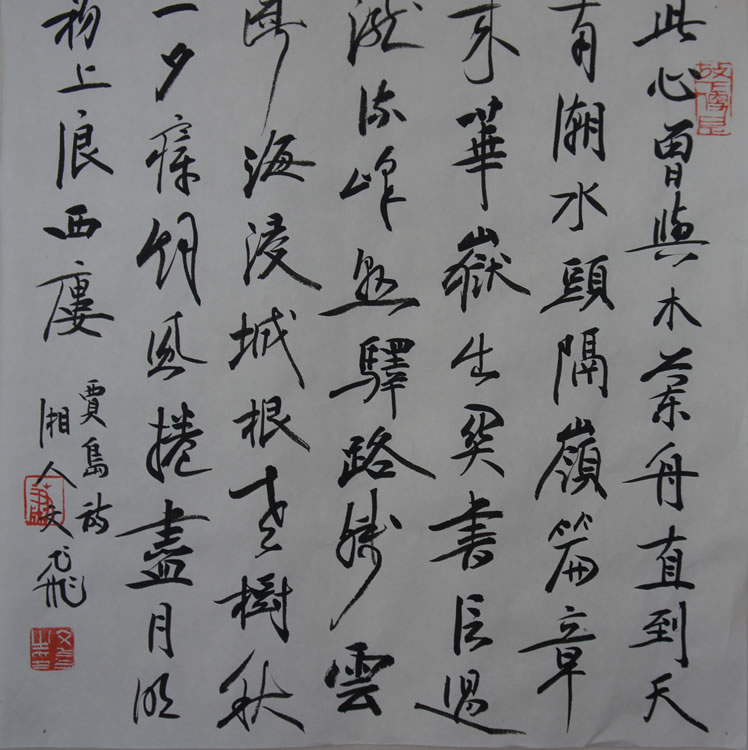 此心曾與木蘭舟直到天
南潮水頭隔嶺篇章
來華嶽出関書信過
瀧流峰悬驛路殘雲
斷海浸城根老樹秋
一夕瘴烟風捲盡月明
初上浪西廔
賈島詩
湘人飛